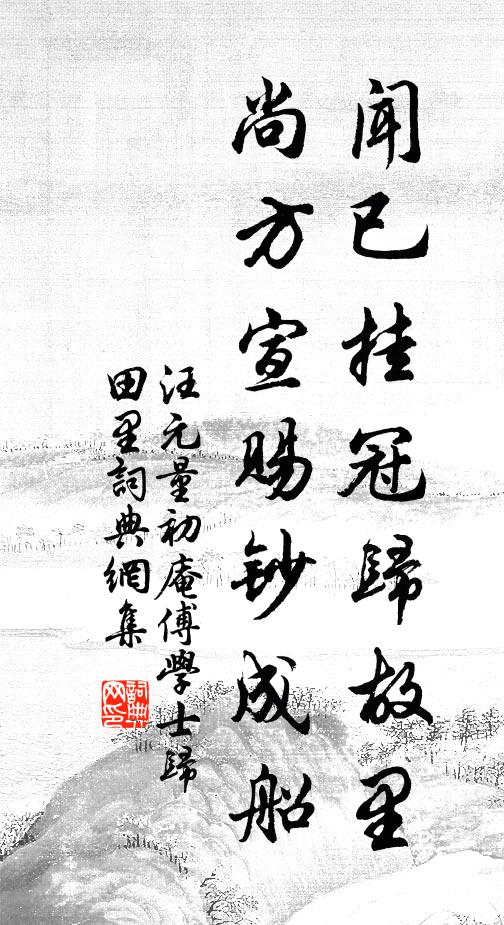 聞已挂冠歸故里
尚方宣賜鈔成船
汪元量初庵傅學士歸
田里詞典網集
詞典
网印